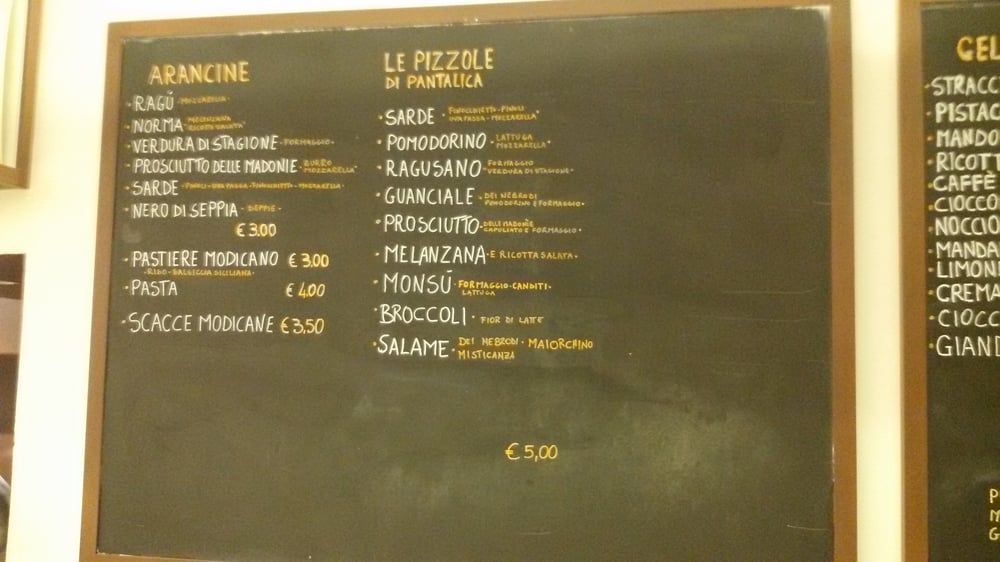 ARANCINE
· RAGÚ · MOZZARELLA ·
· NORMA · MELANZANA
RICOTTA SALATA
· VERDURA DI STAGIONE · FORMAGGIO ·
· PROSCIUTTO DELLE MADONIE · BURRO
MOZZARELLA
· SARDE · PINOLI · UVA PASSA · FINOCCHIETTO · MOZZARELLA ·
· NERO DI SEPPIA · SEPPIE ·
€ 3.00
· PASTIERE MODICANO € 3.00
· RISO · SALSICCIA SICILIANA ·
· PASTA € 4.00
· SCACCE MODICANE € 3,50
LE PIZZOLE
DI PANTALICA
· SARDE · FINOCCHIETTO · PINOLI
UVA PASSA · MOZZARELLA
· POMODORINO · LATTUGA
MOZZARELLA
· RAGUSANO · FORMAGGIO
VERDURA DI STAGIONE
· GUANCIALE · DEI NEBRODI
POMODORINO E FORMAGGIO ·
· PROSCIUTTO · DELLE MADONIE
CAPULIATO E FORMAGGIO ·
· MELANZANA · E RICOTTA SALATA ·
· MONSÚ · FORMAGGIO · CANDITI ·
LATTUGA
· BROCCOLI · FIOR DI LATTE
· SALAME · DEI NEBRODI · MAIORCHINO
MISTICANZA
€ 5,00
GEL
· STRACC
· PISTAC
· MANDO
· RICOTT
· CAFFÈ
· CIOCCO
· NOCCIO
· MANDA
· LIMON
· CREMA
· CIOCC
· GIAND
P
M
G